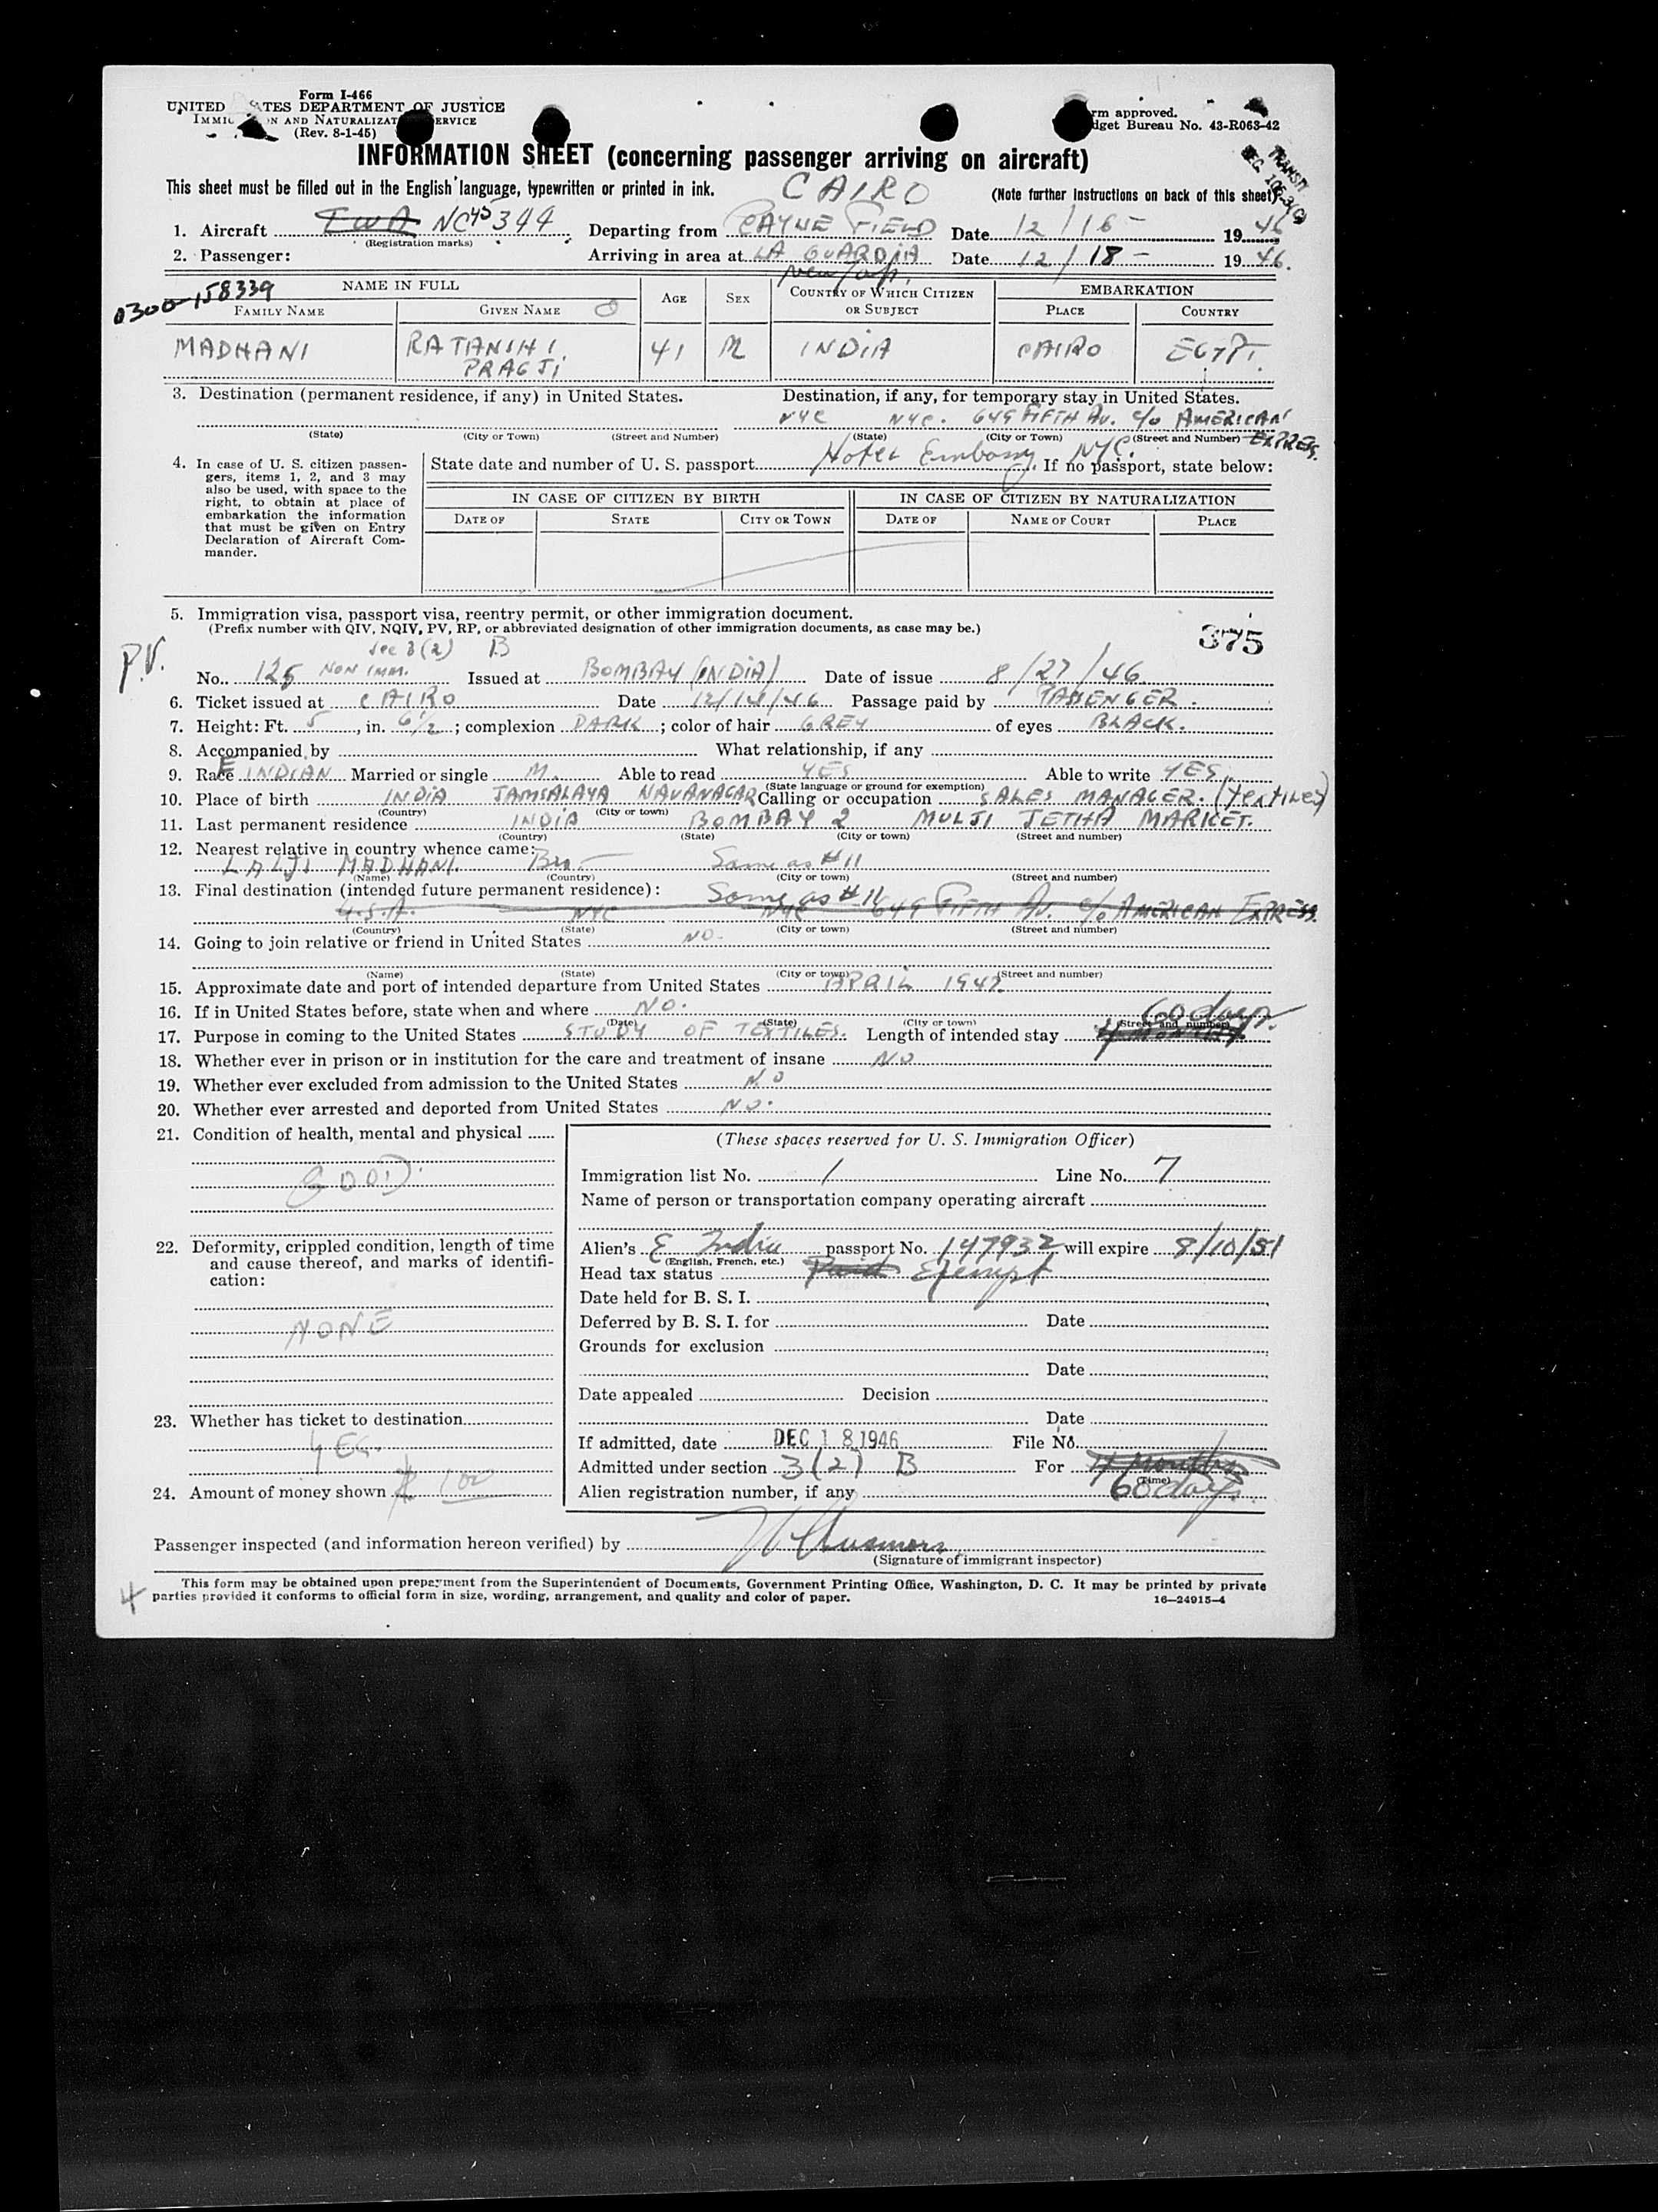 Form I-466
UNITED STATES DEPARTMENT OF JUSTICE
IMMIGRATION AND NATURALIZATION SERVICE
(Rev. 8-1-45)
Form approved.
Budget Bureau No. 43-R063-42
INFORMATION SHEET (concerning passenger arriving on aircraft)
This sheet must be filled out in the English language, typewritten or printed in ink.
CAIRO
(Note further instructions on back of this sheet)
1. Aircraft TWA NC45344 Departing from PAYNE FIELD Date 12/16 - 1946
(Registration marks)
2. Passenger: Arriving in area at LA GUARDIA Date 12/18 - 1946.
New York
0300-158339
NAME IN FULL AGE SEX COUNTRY OF WHICH CITIZEN OR SUBJECT EMBARKATION
FAMILY NAME GIVEN NAME PLACE COUNTRY
MADHANI RATANSHI PRAGJI 41 M INDIA CAIRO EGYPT.
3. Destination (permanent residence, if any) in United States. Destination, if any, for temporary stay in United States.
NYC NYC. 649 FIFTH AV. c/o AMERICAN EXPRESS.
(State) (City or Town) (Street and Number) (State) (City or Town) (Street and Number)
Hotel Embassy NYC.
4. In case of U. S. citizen passengers, items 1, 2, and 3 may also be used, with space to the right, to obtain at place of embarkation the information that must be given on Entry Declaration of Aircraft Commander.
State date and number of U. S. passport. If no passport, state below:
IN CASE OF CITIZEN BY BIRTH IN CASE OF CITIZEN BY NATURALIZATION
DATE OF STATE CITY OR TOWN DATE OF NAME OF COURT PLACE
5. Immigration visa, passport visa, reentry permit, or other immigration document.
(Prefix number with QIV, NQIV, PV, RP, or abbreviated designation of other immigration documents, as case may be.)
375
Sec 3(2) B
P.V.
No. 125 NON IMM. Issued at BOMBAY (INDIA) Date of issue 8/27/46
6. Ticket issued at CAIRO Date 12/14/46 Passage paid by PASSENGER.
7. Height: Ft. 5, in. 6 1/2; complexion DARK; color of hair GREY of eyes BLACK.
8. Accompanied by What relationship, if any
9. Race E INDIAN Married or single M. Able to read YES Able to write YES
(State language or ground for exemption)
10. Place of birth INDIA JAMSALAYA NAVANAGAR Calling or occupation SALES MANAGER. (Textiles)
(Country) (City or town)
11. Last permanent residence INDIA BOMBAY 2 MULJI JETHA MARKET.
(Country) (State) (City or town) (Street and number)
12. Nearest relative in country whence came:
LALJI MADHANI. Bro - Same as #11
(Name) (Country) (City or town) (Street and number)
13. Final destination (intended future permanent residence): Same as #11
U.S.A. NYC NYC 649 FIFTH AV. c/o AMERICAN EXPRESS.
(Country) (State) (City or town) (Street and number)
14. Going to join relative or friend in United States NO.
(Name) (State) (City or town) (Street and number)
15. Approximate date and port of intended departure from United States APRIL 1947.
16. If in United States before, state when and where NO.
(Date) (State) (City or town) (Street and number)
60 days.
17. Purpose in coming to the United States STUDY OF TEXTILES. Length of intended stay
18. Whether ever in prison or in institution for the care and treatment of insane NO
19. Whether ever excluded from admission to the United States NO
20. Whether ever arrested and deported from United States NO.
21. Condition of health, mental and physical
GOOD.
22. Deformity, crippled condition, length of time and cause thereof, and marks of identification:
NONE
23. Whether has ticket to destination
YES.
24. Amount of money shown $ 100
(These spaces reserved for U. S. Immigration Officer)
Immigration list No. 1 Line No. 7
Name of person or transportation company operating aircraft
Alien's E India passport No. 147932 will expire 8/10/51
(English, French, etc.)
Head tax status Paid Exempt
Date held for B. S. I.
Deferred by B. S. I. for Date
Grounds for exclusion
Date
Date appealed Decision
Date
If admitted, date DEC 18 1946 File No.
Admitted under section 3(2) B For 4 months
(Time)
Alien registration number, if any 60 days.
Passenger inspected (and information hereon verified) by
(Signature of immigrant inspector)
This form may be obtained upon prepayment from the Superintendent of Documents, Government Printing Office, Washington, D. C. It may be printed by private
4 parties provided it conforms to official form in size, wording, arrangement, and quality and color of paper.
16—24915-4